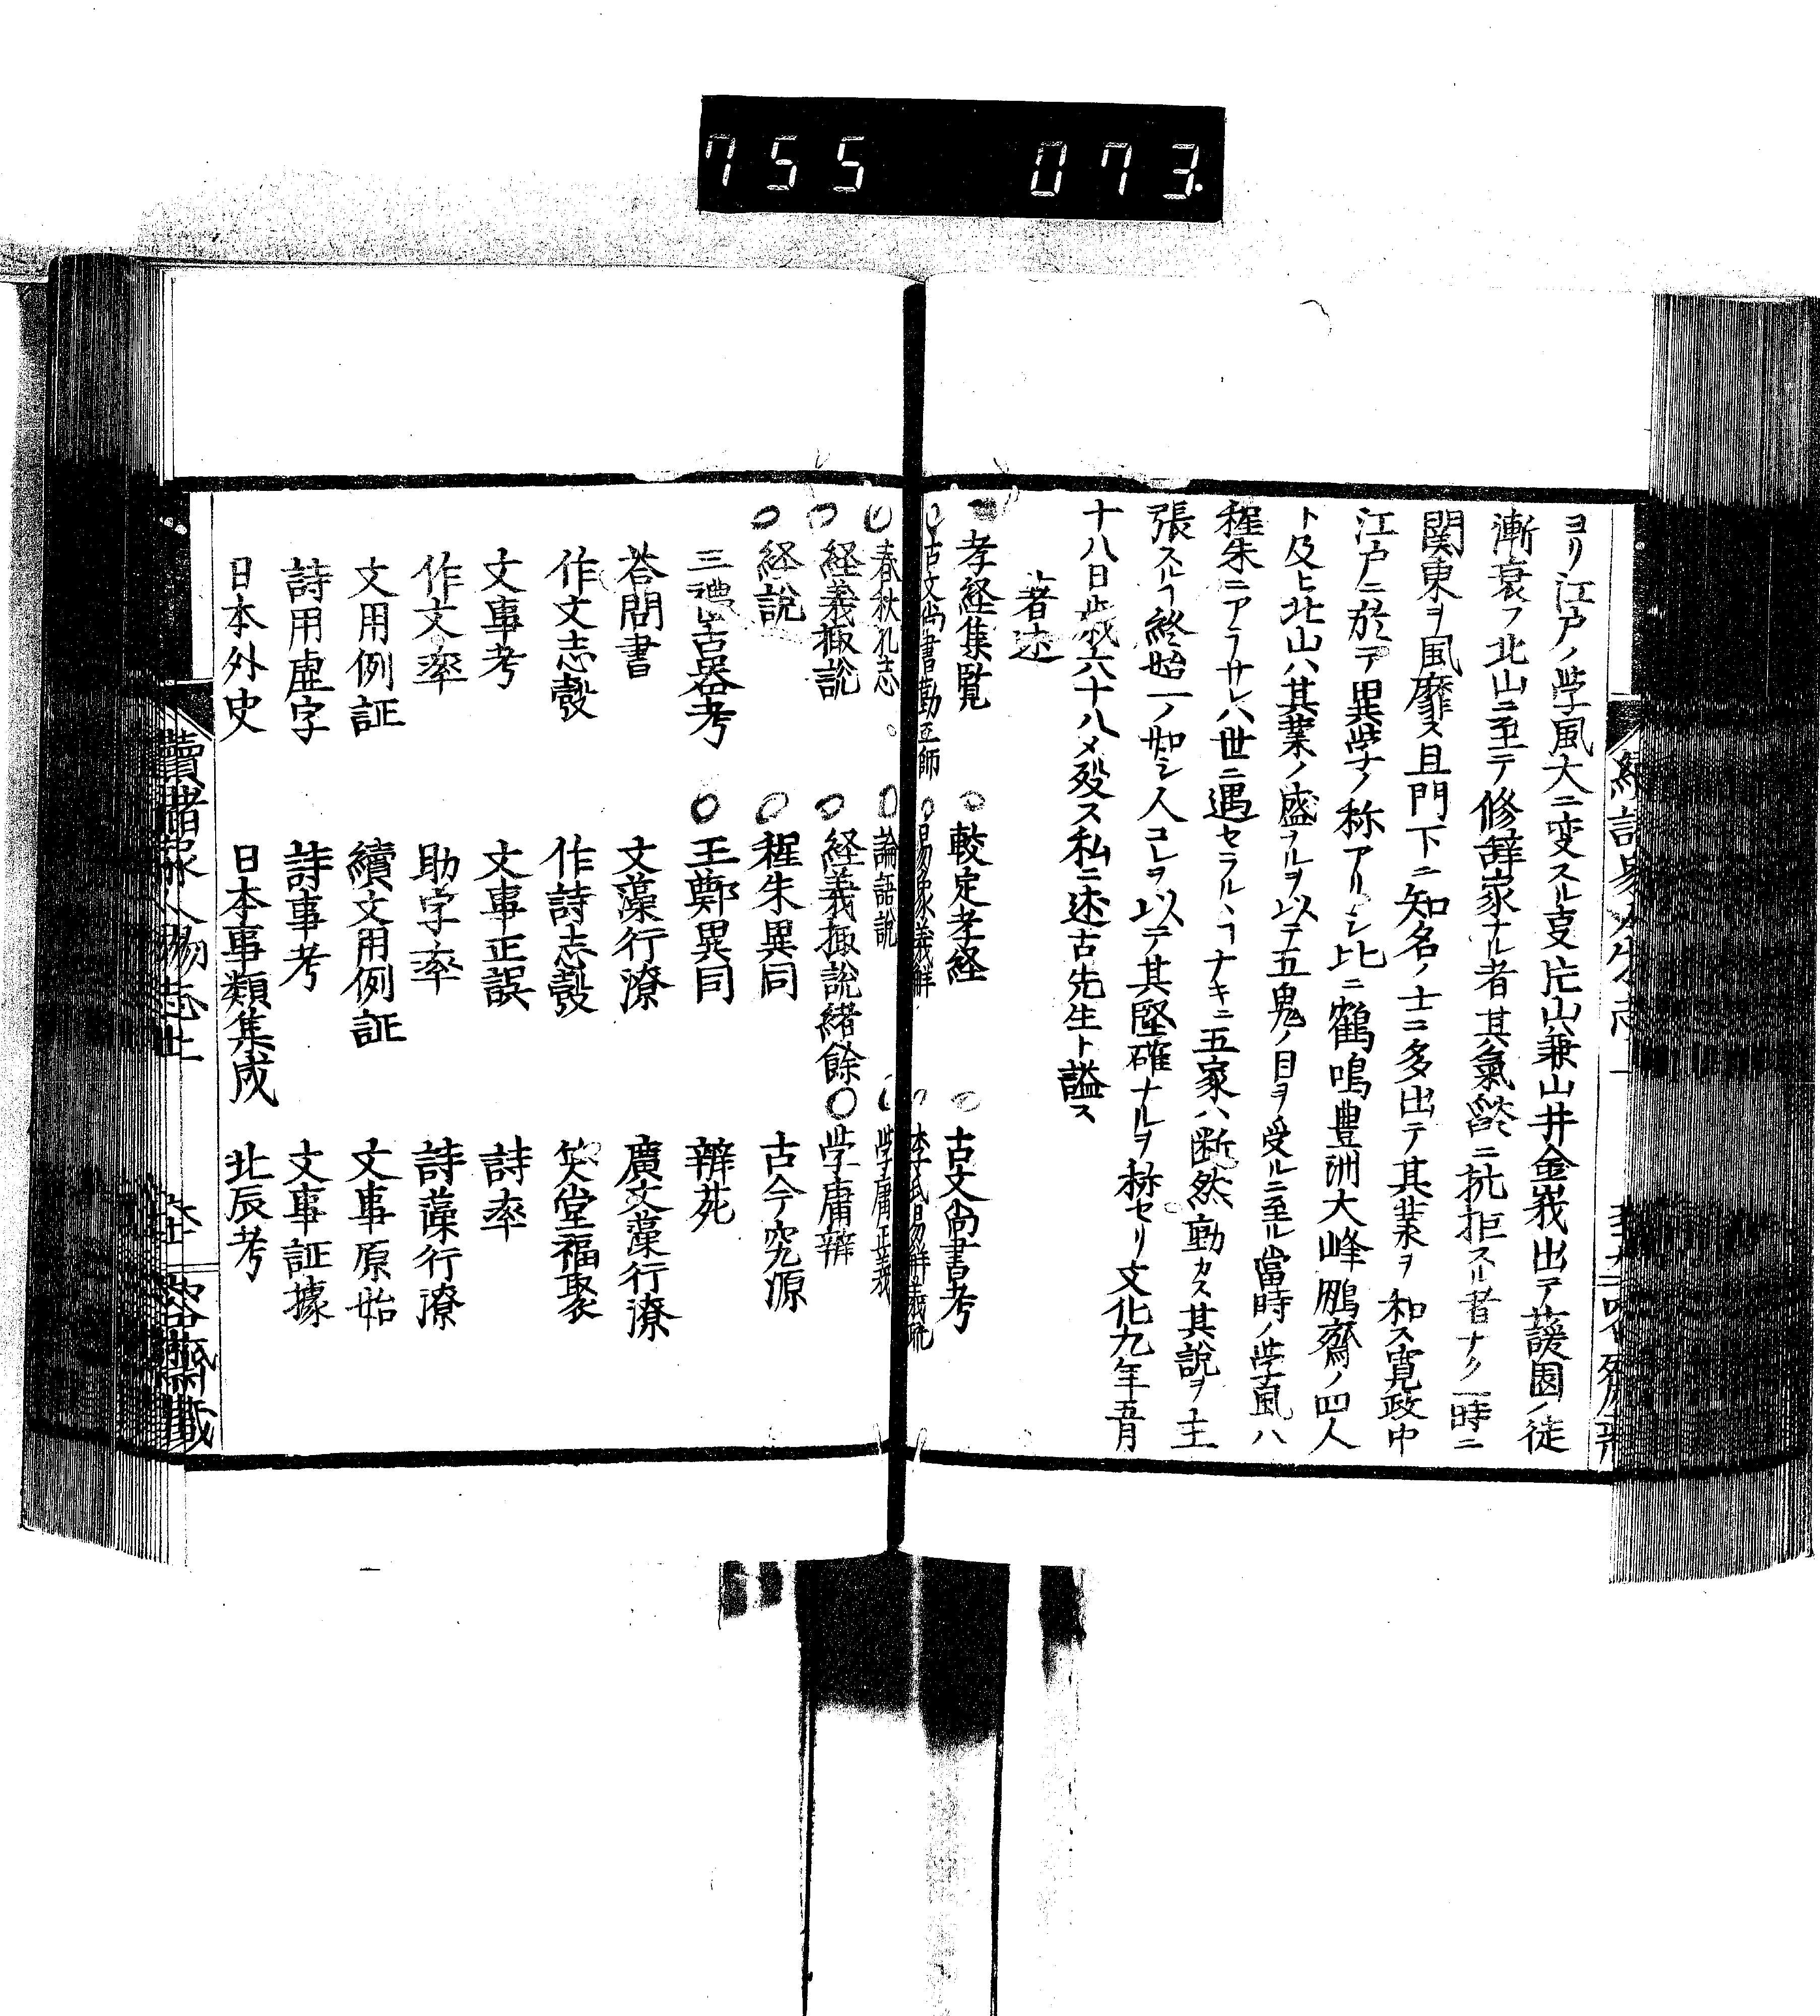 755 073.
ヨリ江戸ノ学風大ニ変スルニ片山兼山井金峩出テ蘐園ノ徒
漸衰フ北山ニ至テ修辞家ナル者其氣焰ニ抗拒スル者ナク一時ニ
関東ヲ風靡ス且門下ニ知名ノ士コ多出テ其業ヲ和ス寛政中
江戸ニ於テ異学ノ称アリシ比ニ鶴鳴豊洲大峰鵬齋ノ四人
ト及ヒ北山ハ其業ノ盛ナルヲ以テ五鬼ノ目ヲ受ルニ至ル當時ノ学風ハ
程朱ニアラサレハ世ニ遇セラルヽヿナキニ五家ハ断然動カス其説ヲ主
張スルヿ終始一ノ如シ人コレヲ以テ其堅確ナルヲ称セリ文化九年五月
十八日歳六十八〆殁ス私ニ述古先生ト諡ス
著述
孝経集覧 較定孝経 古文尚書考
古文尚書勤王師 易象義解 李氏易解義疏
春秋孔志 論語説 学庸正義
経義掫説 経義掫説緒餘 学庸辯
経説 程朱異同 古今究源
三禮古器考 王鄭異同 辯苑
荅問書 文藻行潦 廣文藻行潦
作文志彀 作詩志彀 笑堂福聚
文事考 文事正誤 詩率
作文率 助字率 詩藻行潦
文用例証 續文用例証 文事原始
詩用虚字 詩事考 文事証據
日本外史 日本事類集成 北辰考